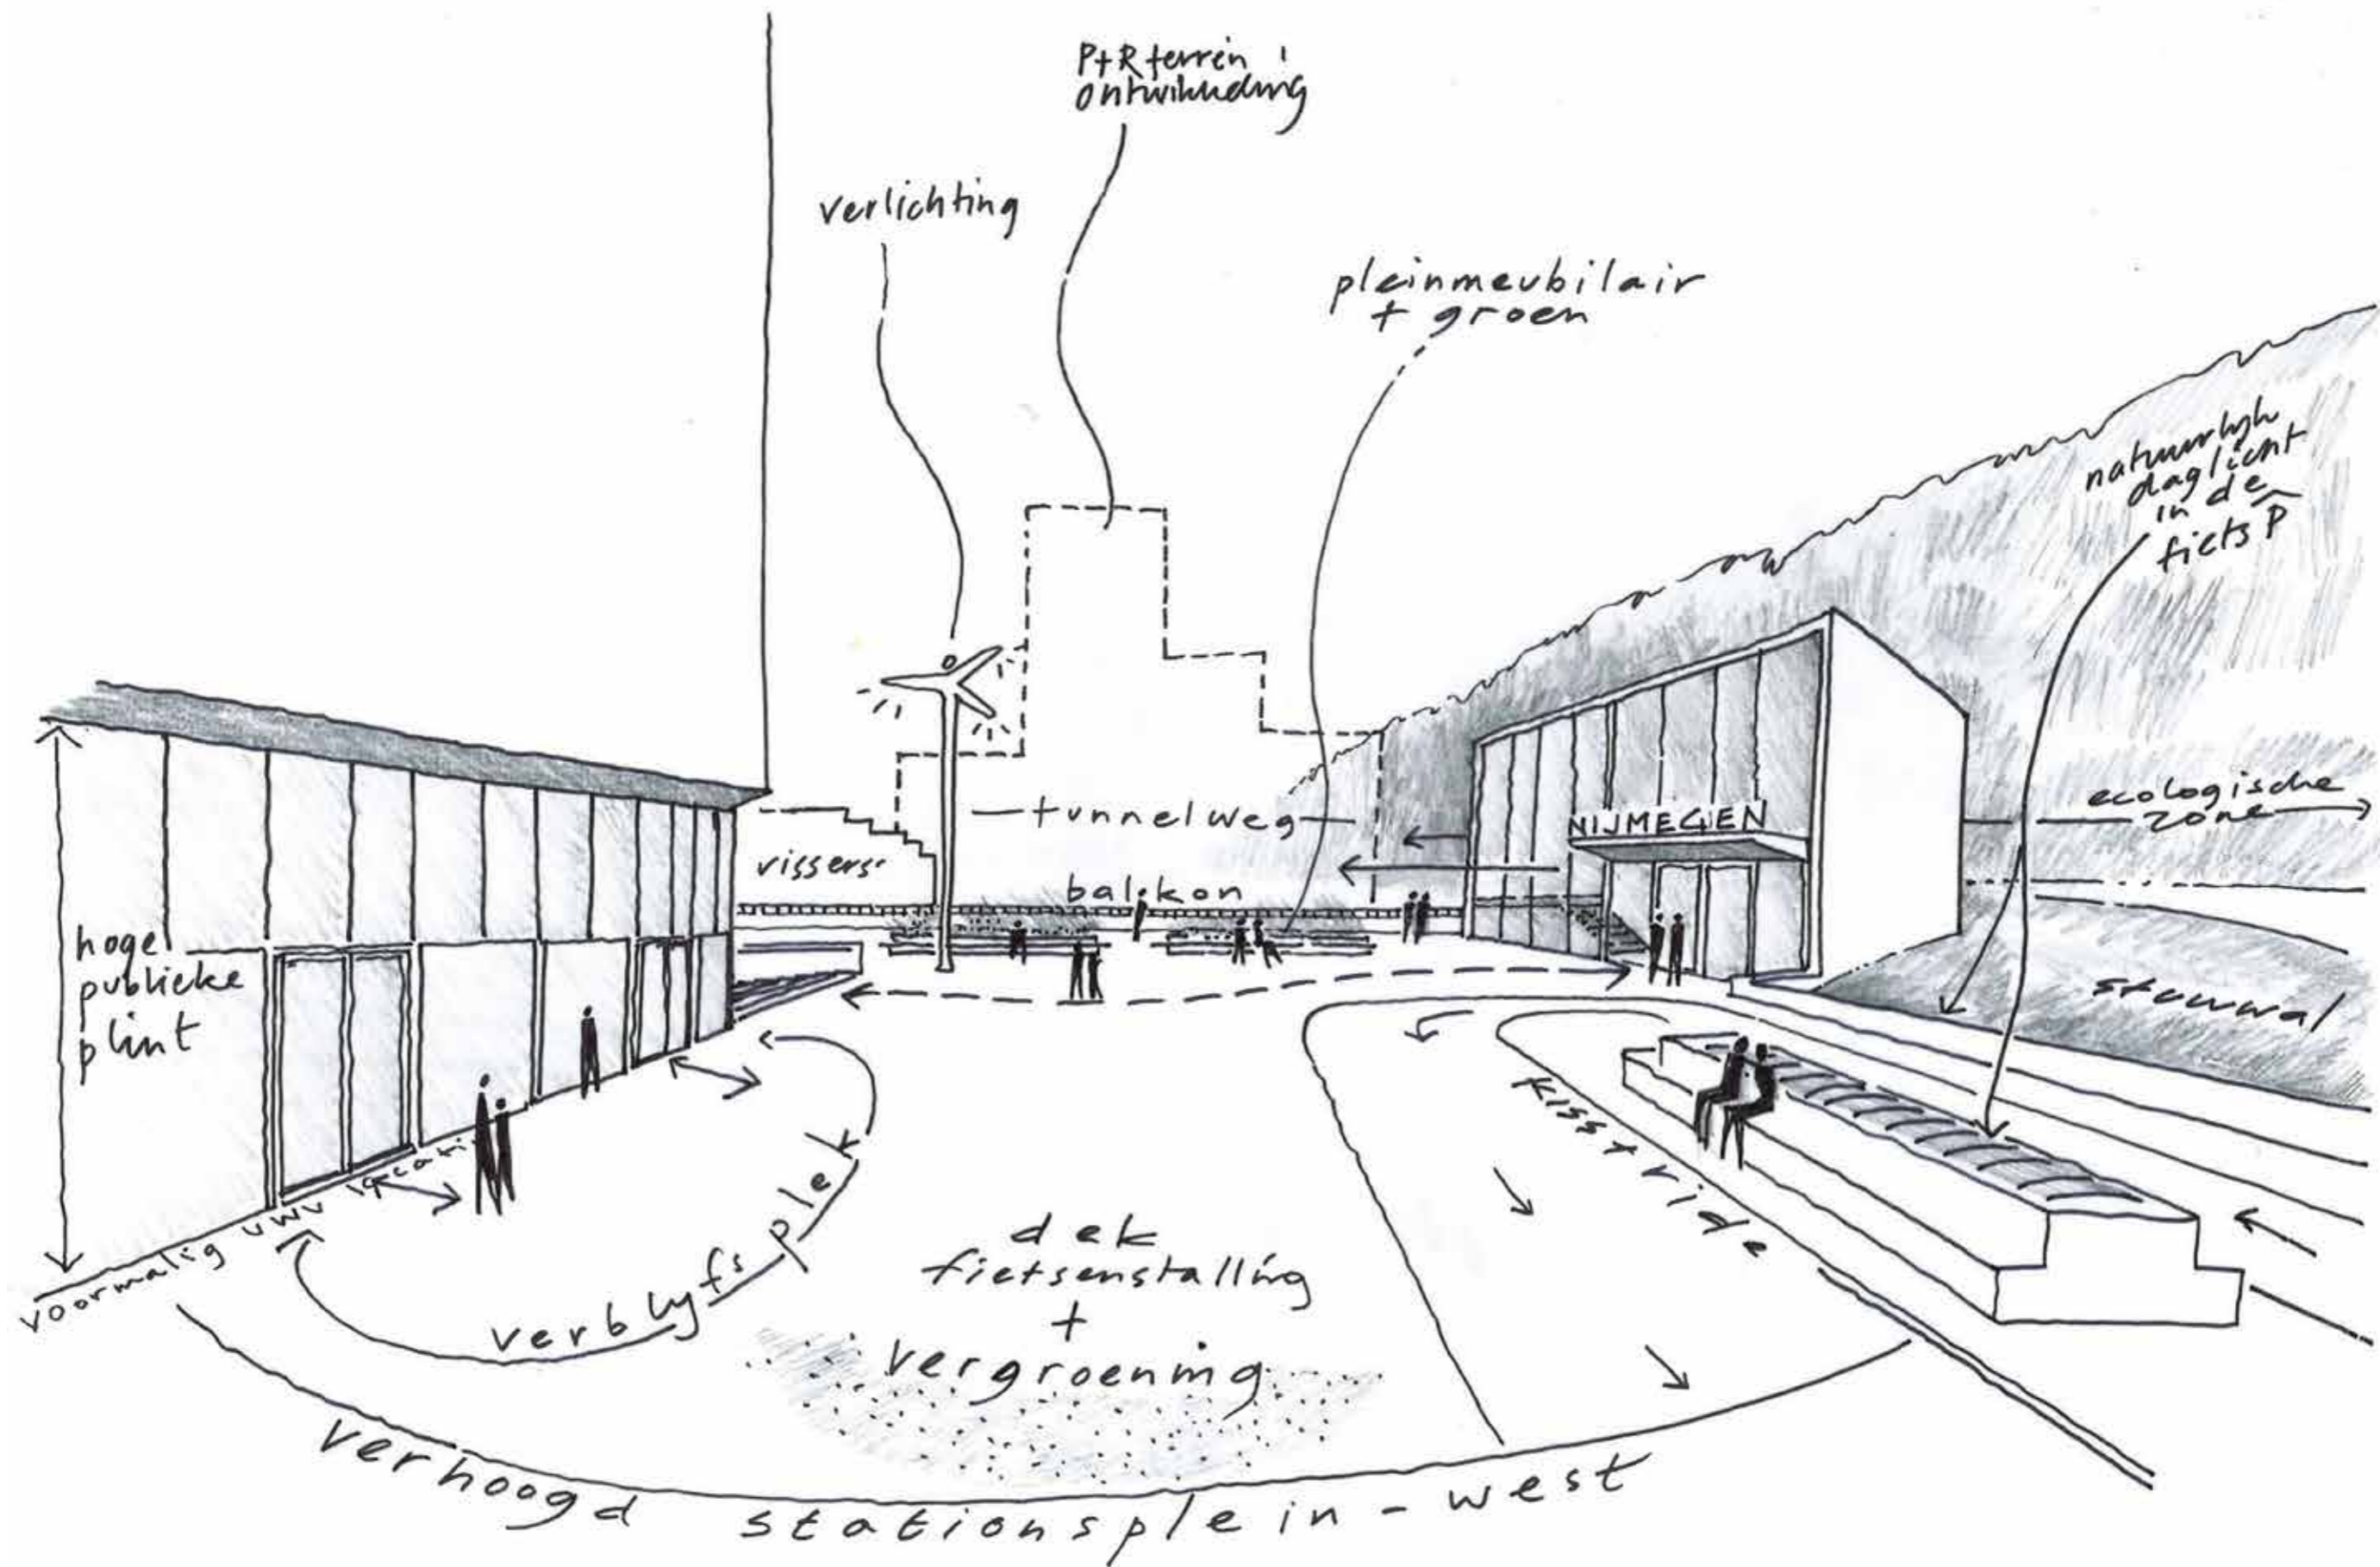 P+R terrein
ontwikkeling
verlichting
pleinmeubilair
+ groen
natuurlyk
daglicht
in de
fiets P
ecologische
zone
tunnelweg
NIJMEGEN
vissers.
balkon
hoge
publieke
plint
stuwwal
kiss + ride
voormalig UWV locatie
verblyfsple
dek
fietsenstalling
+
vergroening
verhoogd stationsplein-west